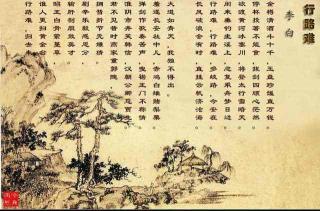 行路难
李白
金樽清酒斗十千，玉盘珍羞直万钱。
停杯投箸不能食，拔剑四顾心茫然。
欲渡黄河冰塞川，将登太行雪暗天。
闲来垂钓坐溪上，忽复乘舟梦日边。
行路难，行路难，多歧路，今安在。
长风破浪会有时，直挂云帆济沧海。
大道如青天，我独不得出。
羞逐长安社中儿，赤鸡白雉赌梨栗。
弹剑作歌奏苦声，曳裾王门不称情。
淮阴市井笑韩信，汉朝公卿忌贾生。
君不见昔时燕家重郭隗，
拥篲折节无嫌猜。
剧辛乐毅感恩分，
输肝剖胆效英才。
昭王白骨萦蔓草，
谁人更扫黄金台。
行路难，归去来。